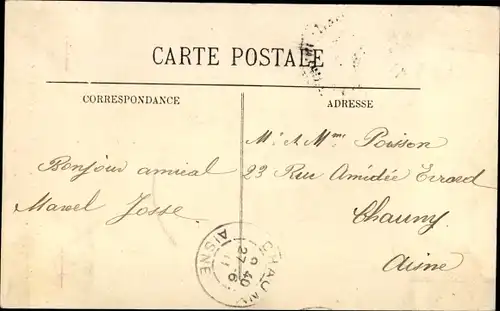 CARTE POSTALE
CORRESPONDANCE
ADRESSE
Mr & Mme Poisson
23 Rue Amédée Evrard
Chauny
Aisne
Bonjour amical
Marcel Josse
CHAUNY
9 40
27-6
11
AISNE